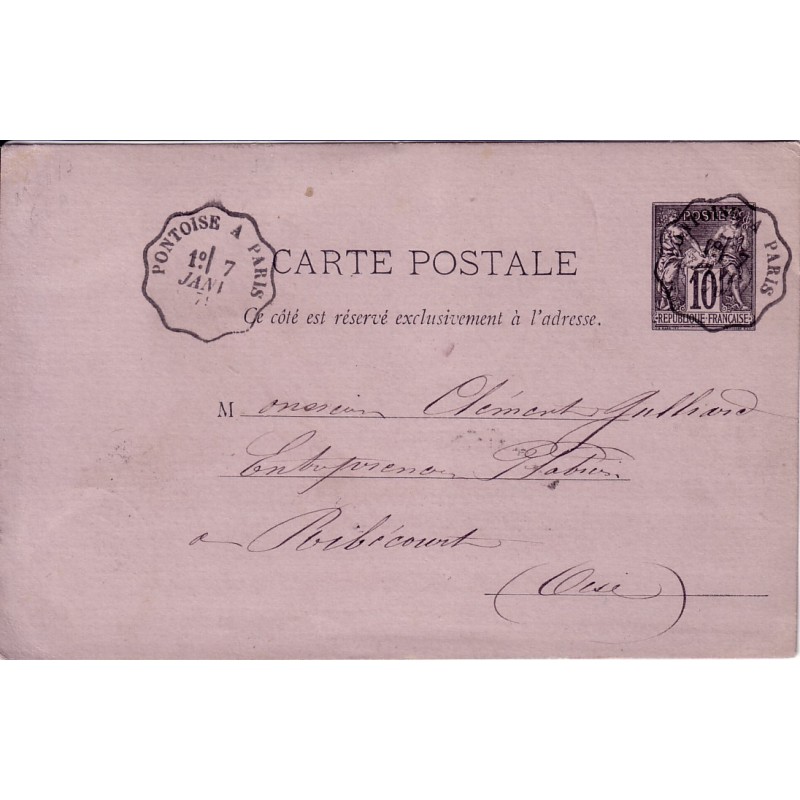 PONTOISE A PARIS
1º/ 7
JANV
CARTE POSTALE
Ce côté est réservé exclusivement à l'adresse.
POSTES
10
REPUBLIQUE FRANÇAISE
PONTOISE A PARIS
Monsieur Clément Galliard
Entrepreneur
à Ribécourt
(Oise)